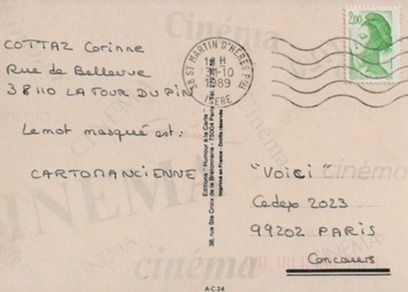 COTTAZ Corinne
Rue de Bellevue
38110 LA TOUR DU PIN
Le mot masqué est :
CARTOMANCIENNE
38 ST MARTIN D'HERES PAL
H
31-10
1989
ISERE
2,00
Editions "Humour à la Carte"
38, rue Ste Croix de la Bretonnerie - 75004 Paris
Imprimé en France - Droits réservés
"VOICI"
Cedex 2023
99202 PARIS
Concours
A-C 24
Cinéma
CINEMA
Cinéma
Cinéma
CINEMA
cinéma